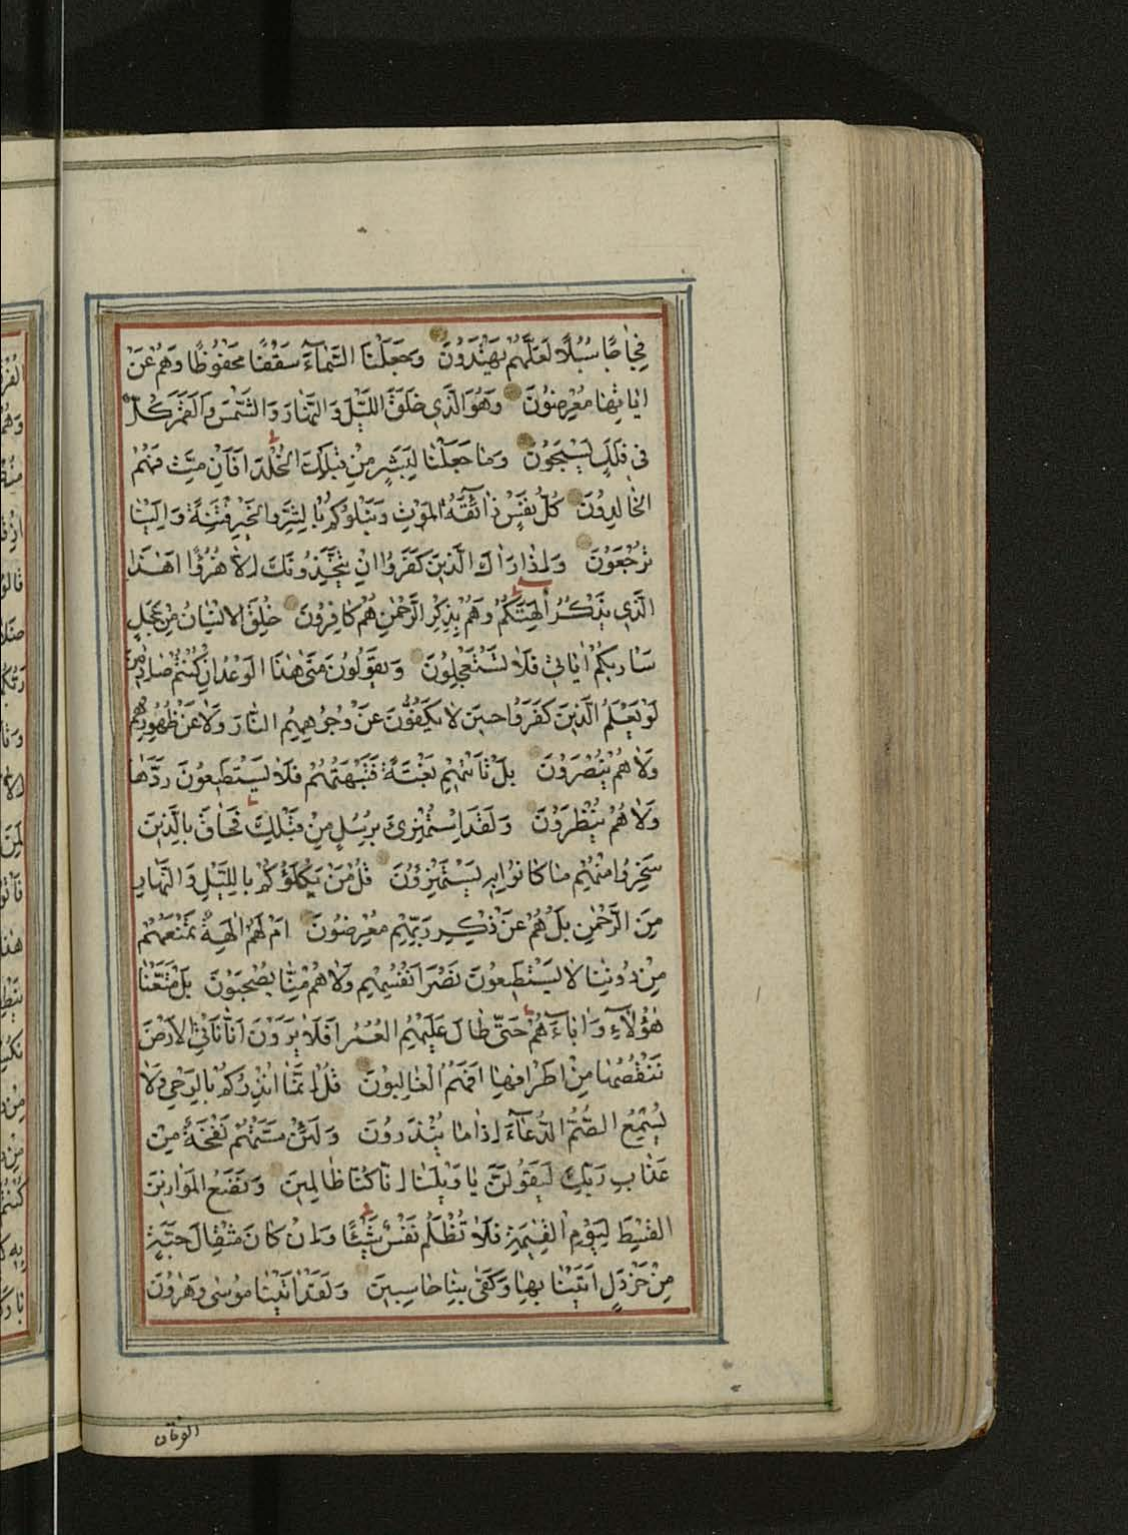 فِجَاجًا سُبُلًا لَعَلَّهُمْ يَهْتَدُونَ وَجَعَلْنَا السَّمَاءَ سَقْفًا مَحْفُوظًا وَهُمْ عَنْ
اٰيَاتِهَا مُعْرِضُونَ وَهُوَ الَّذِي خَلَقَ اللَّيْلَ وَالنَّهَارَ وَالشَّمْسَ وَالْقَمَرَ كُلٌّ
فِي فَلَكٍ يَسْبَحُونَ وَمَا جَعَلْنَا لِبَشَرٍ مِنْ قَبْلِكَ الْخُلْدَ اَفَاِنْ مِتَّ فَهُمُ
الْخَالِدُونَ كُلُّ نَفْسٍ ذَائِقَةُ الْمَوْتِ وَنَبْلُوكُمْ بِالشَّرِّ وَالْخَيْرِ فِتْنَةً وَاِلَيْنَا
تُرْجَعُونَ وَاِذَا رَاٰكَ الَّذِينَ كَفَرُوا اِنْ يَتَّخِذُونَكَ اِلَّا هُزُوًا اَهٰذَا
الَّذِي يَذْكُرُ اٰلِهَتَكُمْ وَهُمْ بِذِكْرِ الرَّحْمٰنِ هُمْ كَافِرُونَ خُلِقَ الْاِنْسَانُ مِنْ عَجَلٍ
سَاُرِيكُمْ اٰيَاتِي فَلَا تَسْتَعْجِلُونَ وَيَقُولُونَ مَتٰى هٰذَا الْوَعْدُ اِنْ كُنْتُمْ صَادِقِينَ
لَوْ يَعْلَمُ الَّذِينَ كَفَرُوا حِينَ لَا يَكُفُّونَ عَنْ وُجُوهِهِمُ النَّارَ وَلَا عَنْ ظُهُورِهِمْ
وَلَا هُمْ يُنْصَرُونَ بَلْ تَاْتِيهِمْ بَغْتَةً فَتَبْهَتُهُمْ فَلَا يَسْتَطِيعُونَ رَدَّهَا
وَلَا هُمْ يُنْظَرُونَ وَلَقَدِ اسْتُهْزِئَ بِرُسُلٍ مِنْ قَبْلِكَ فَحَاقَ بِالَّذِينَ
سَخِرُوا مِنْهُمْ مَا كَانُوا بِهِ يَسْتَهْزِؤُنَ قُلْ مَنْ يَكْلَؤُكُمْ بِاللَّيْلِ وَالنَّهَارِ
مِنَ الرَّحْمٰنِ بَلْ هُمْ عَنْ ذِكْرِ رَبِّهِمْ مُعْرِضُونَ اَمْ لَهُمْ اٰلِهَةٌ تَمْنَعُهُمْ
مِنْ دُونِنَا لَا يَسْتَطِيعُونَ نَصْرَ اَنْفُسِهِمْ وَلَا هُمْ مِنَّا يُصْحَبُونَ بَلْ مَتَّعْنَا
هٰؤُلَاءِ وَاٰبَاءَهُمْ حَتّٰى طَالَ عَلَيْهِمُ الْعُمُرُ اَفَلَا يَرَوْنَ اَنَّا نَاْتِي الْاَرْضَ
نَنْقُصُهَا مِنْ اَطْرَافِهَا اَفَهُمُ الْغَالِبُونَ قُلْ اِنَّمَا اُنْذِرُكُمْ بِالْوَحْيِ وَلَا
يَسْمَعُ الصُّمُّ الدُّعَاءَ اِذَا مَا يُنْذَرُونَ وَلَئِنْ مَسَّتْهُمْ نَفْحَةٌ مِنْ
عَذَابِ رَبِّكَ لَيَقُولُنَّ يَا وَيْلَنَا اِنَّا كُنَّا ظَالِمِينَ وَنَضَعُ الْمَوَازِينَ
الْقِسْطَ لِيَوْمِ الْقِيٰمَةِ فَلَا تُظْلَمُ نَفْسٌ شَيْئًا وَاِنْ كَانَ مِثْقَالَ حَبَّةٍ
مِنْ خَرْدَلٍ اَتَيْنَا بِهَا وَكَفٰى بِنَا حَاسِبِينَ وَلَقَدْ اٰتَيْنَا مُوسٰى وَهٰرُونَ
الفرقان